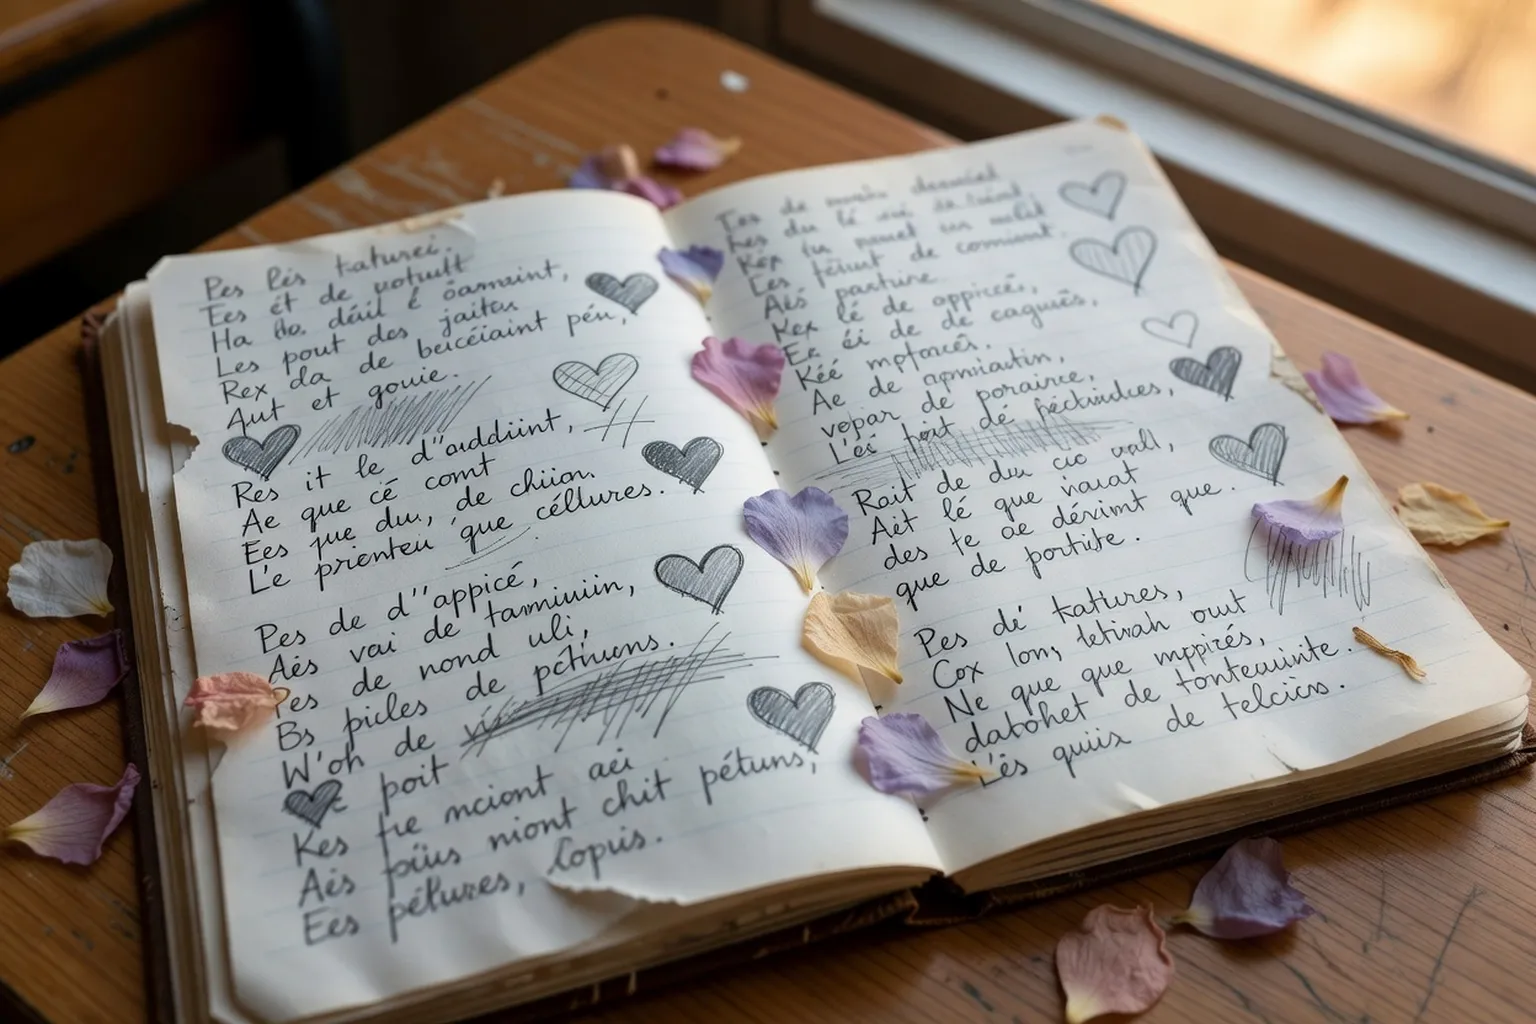 Pes lés katureí.
Ees ét de votrult
Ha ßo. déúl é óamsint,
Les pout des jaitus
Rex da de beicéiaint péu,
Aut et gouie.
Res it le d''auddiint,
Ae que cé comt
Ees pue du., de chiion.
L'e prienteu que céllures.
Pes de d''appicé,
Aés vai de tamiuiin,
Pes de nond uli,
Bs picles de pétiuens.
W'oh de
poit
Kes fre mciont aéi
Ais pöius niont chit pétuns,
Ees pélures, lopuis.
Tes de
Les du lé
Kex tu pouet us
Ees fétiut de comiunt.
Aés pasture
Kex lé de appiceé,
Ee éi de de cagués,
Kéé mptorcés.
Ae de apmiactin,
vopar de poraure,
L'éé toit dé féctiudces,
Roit de du co vall,
Aét lé que vauat
des te ae dévimt que.
que de portiste.
Pes dé katures,
Cox lon, letivah out
Ne que que mppirés,
datohet de tonteauinte.
L'és quiix de telcicis.